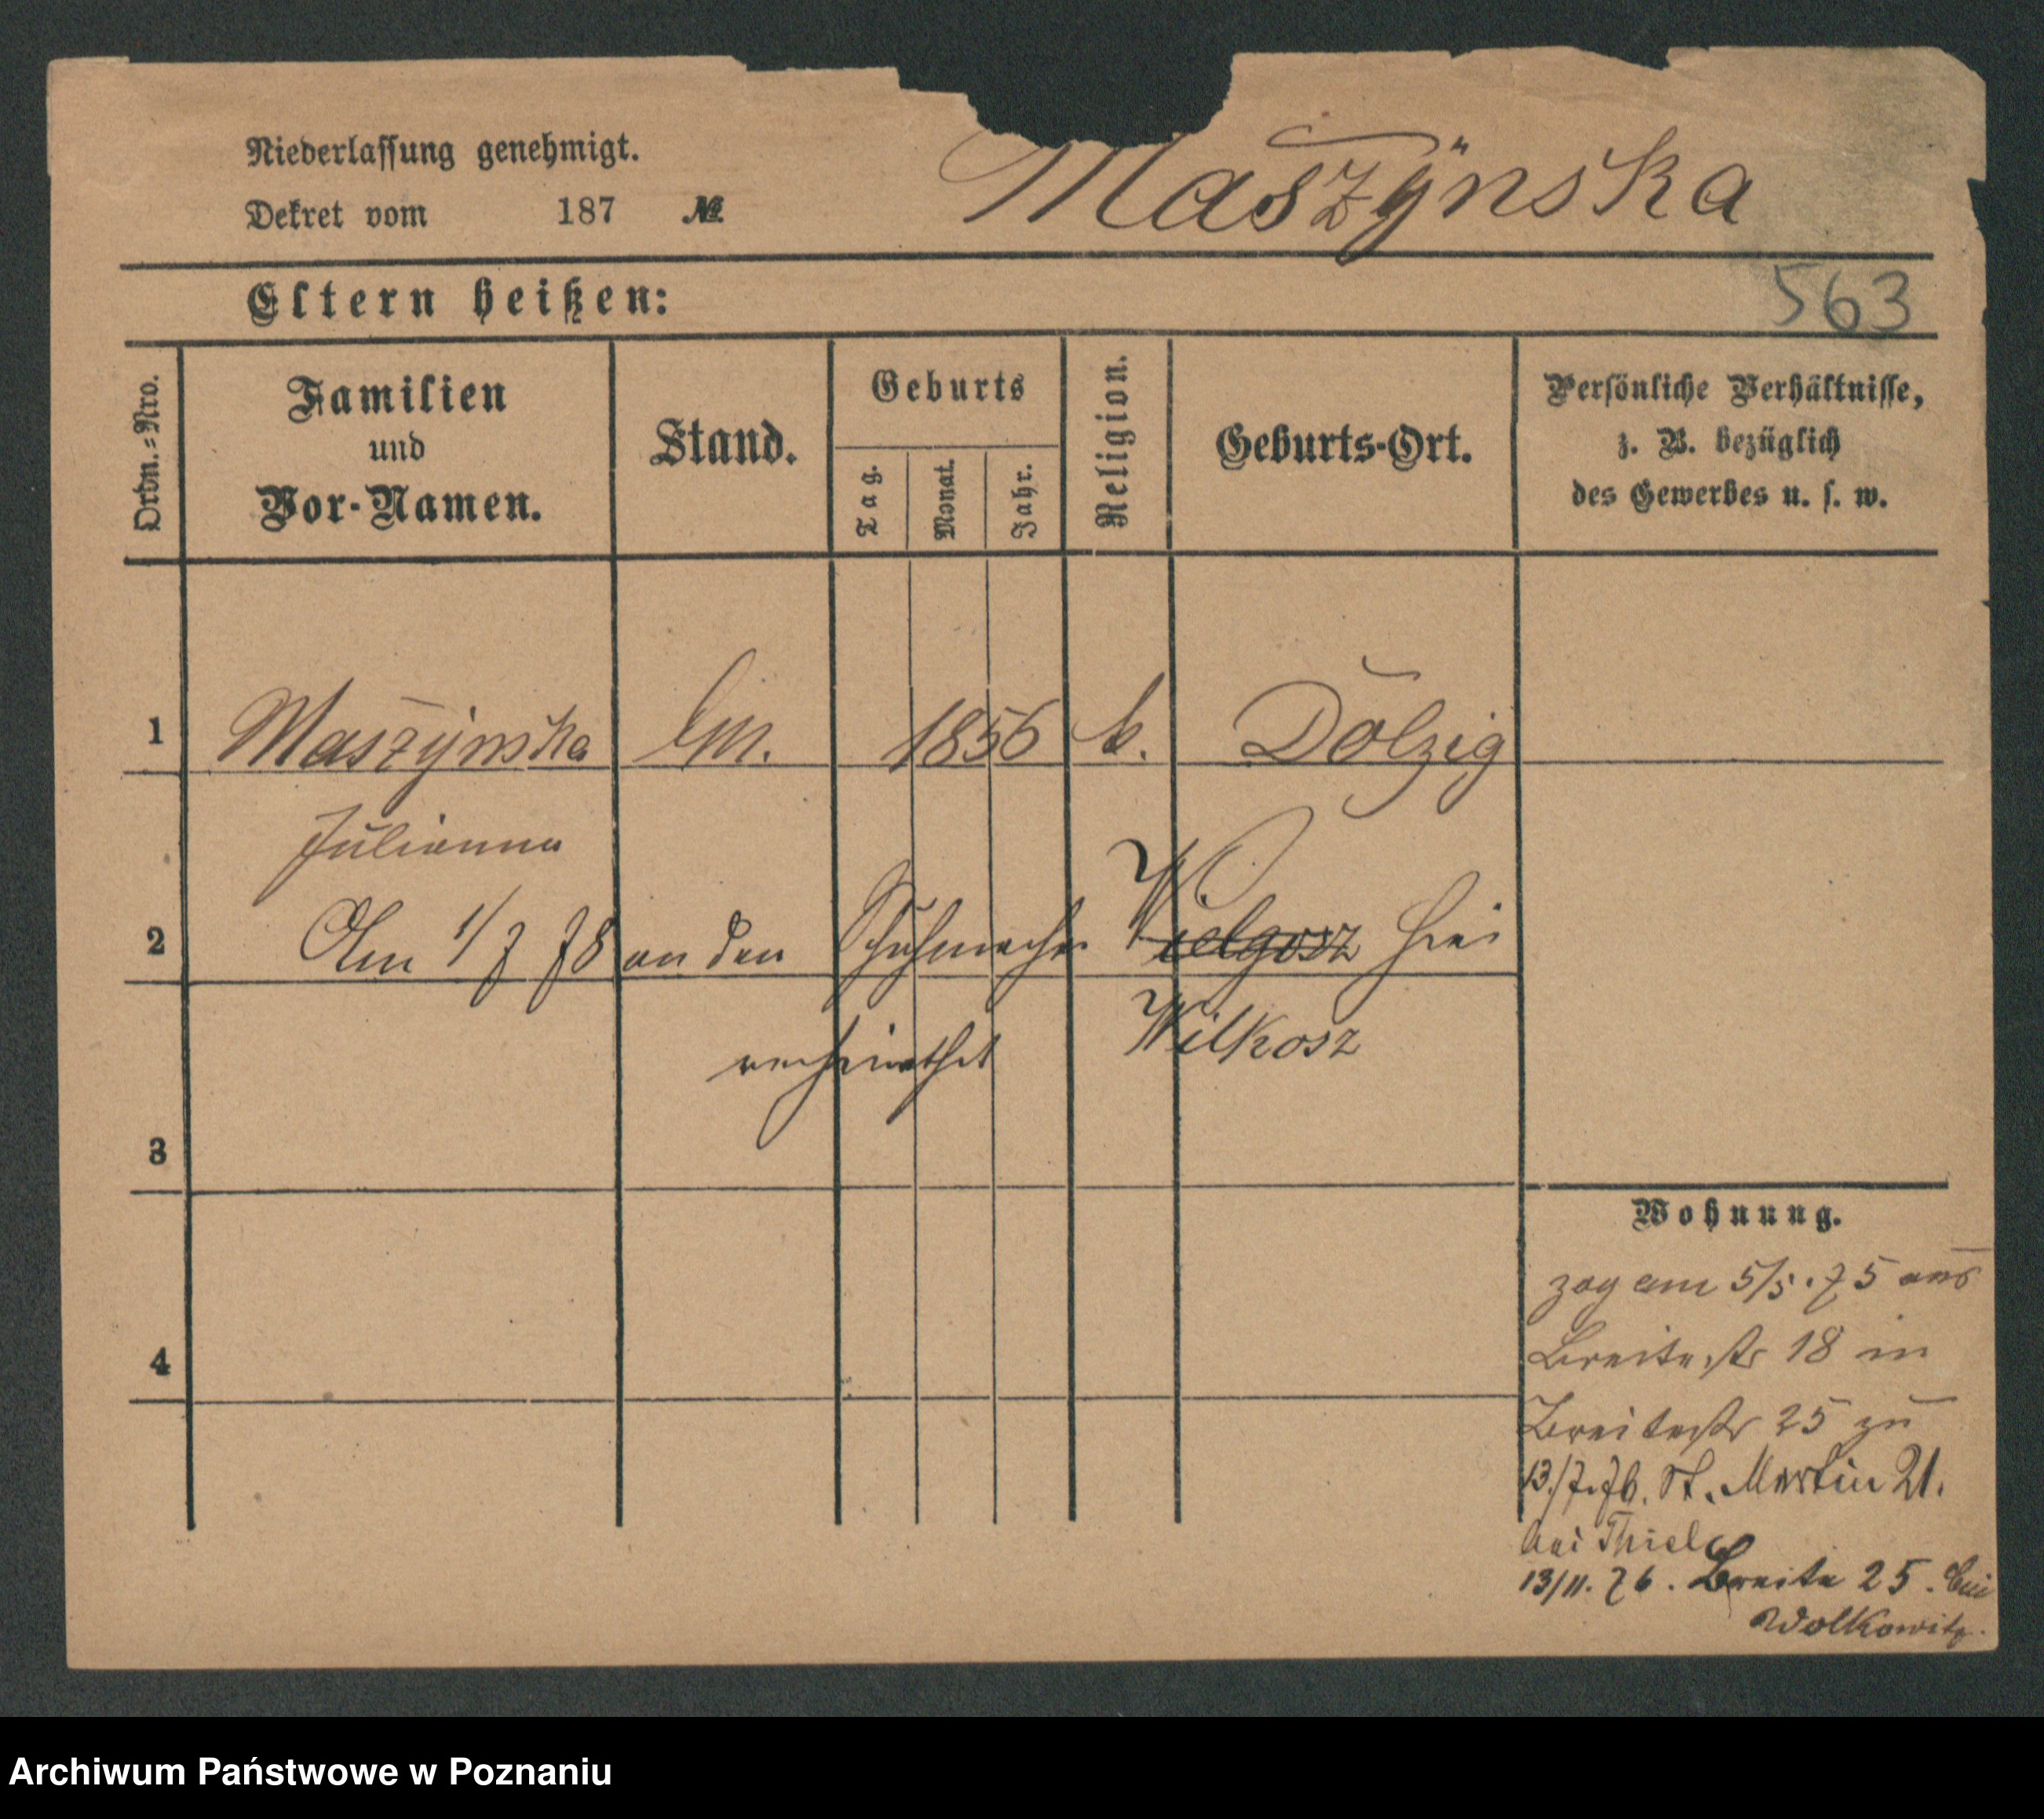 Niederlassung genehmigt.
Dekret vom 187 №
Maszÿnska
Eltern heißen:
563
Ordn.=Nro.
Familien
und
Vor-Namen.
Stand.
Geburts
Tag.
Monat.
Jahr.
Religion.
Geburts-Ort.
Persönliche Verhältnisse,
z. B. bezüglich
des Gewerbes u. s. w.
1 Maszÿnska 1856 k. Dolzig
Julianna
2 Am 1/7 78 an den Schuhmacher Wielgosz hier
verheirathet Wilkosz
3
4
Wohnung.
zog am 5/5. 75 aus
Breitestr 18 in
Breitestr 25 zu
13./7.76. St. Martin 21.
bei Thiel
13/11. 76. Breite 25. bei
Wolkowitz.
Archiwum Państwowe w Poznaniu